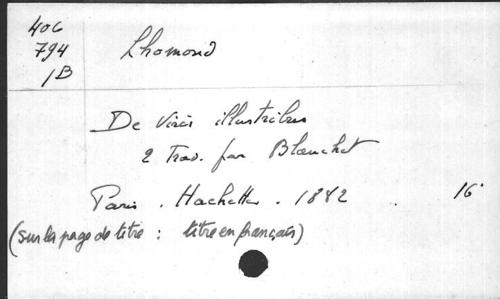 406
794
/B
Lhomond
De Viris illustribus
2 Trad. par Blanchet
Paris . Hachette . 1882 16°
(sur la page de titre : titre en français)